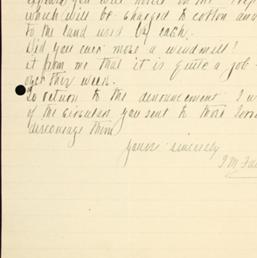 you will
which will be charged to cotton and
to the land used by cash.
Did you ever move a windmill?
it from me that it is quite a job
over this week.
To return to the announcement I
of the circular you sent to those
discourage them
Yours sincerely